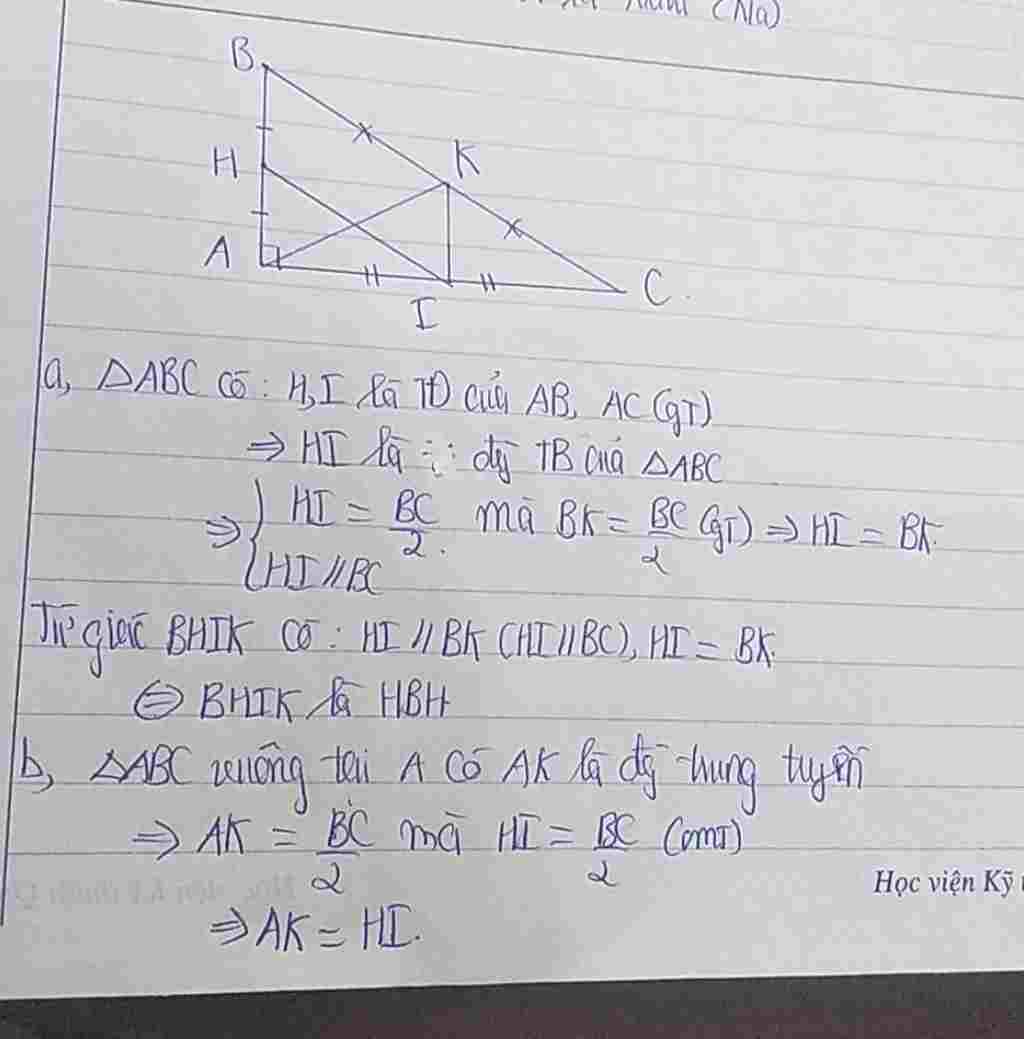 (Na)
B
H
K
A
I
C
a, △ABC Có: H,I là TĐ của AB, AC (gT)
⇒ HI là đg TB của △ABC
⇒ { HI = BC/2. mà BK = BC/2 (gT) ⇒ HI = BK.
HI // BC
Tứ giác BHIK Có: HI // BK (HI // BC), HI = BK.
⇔ BHIK là HBH
b, △ABC vuông tại A Có AK là đg trung tuyến
⇒ AK = BC/2 mà HI = BC/2 (cmT)
Học viện Kỹ
⇒ AK = HI.